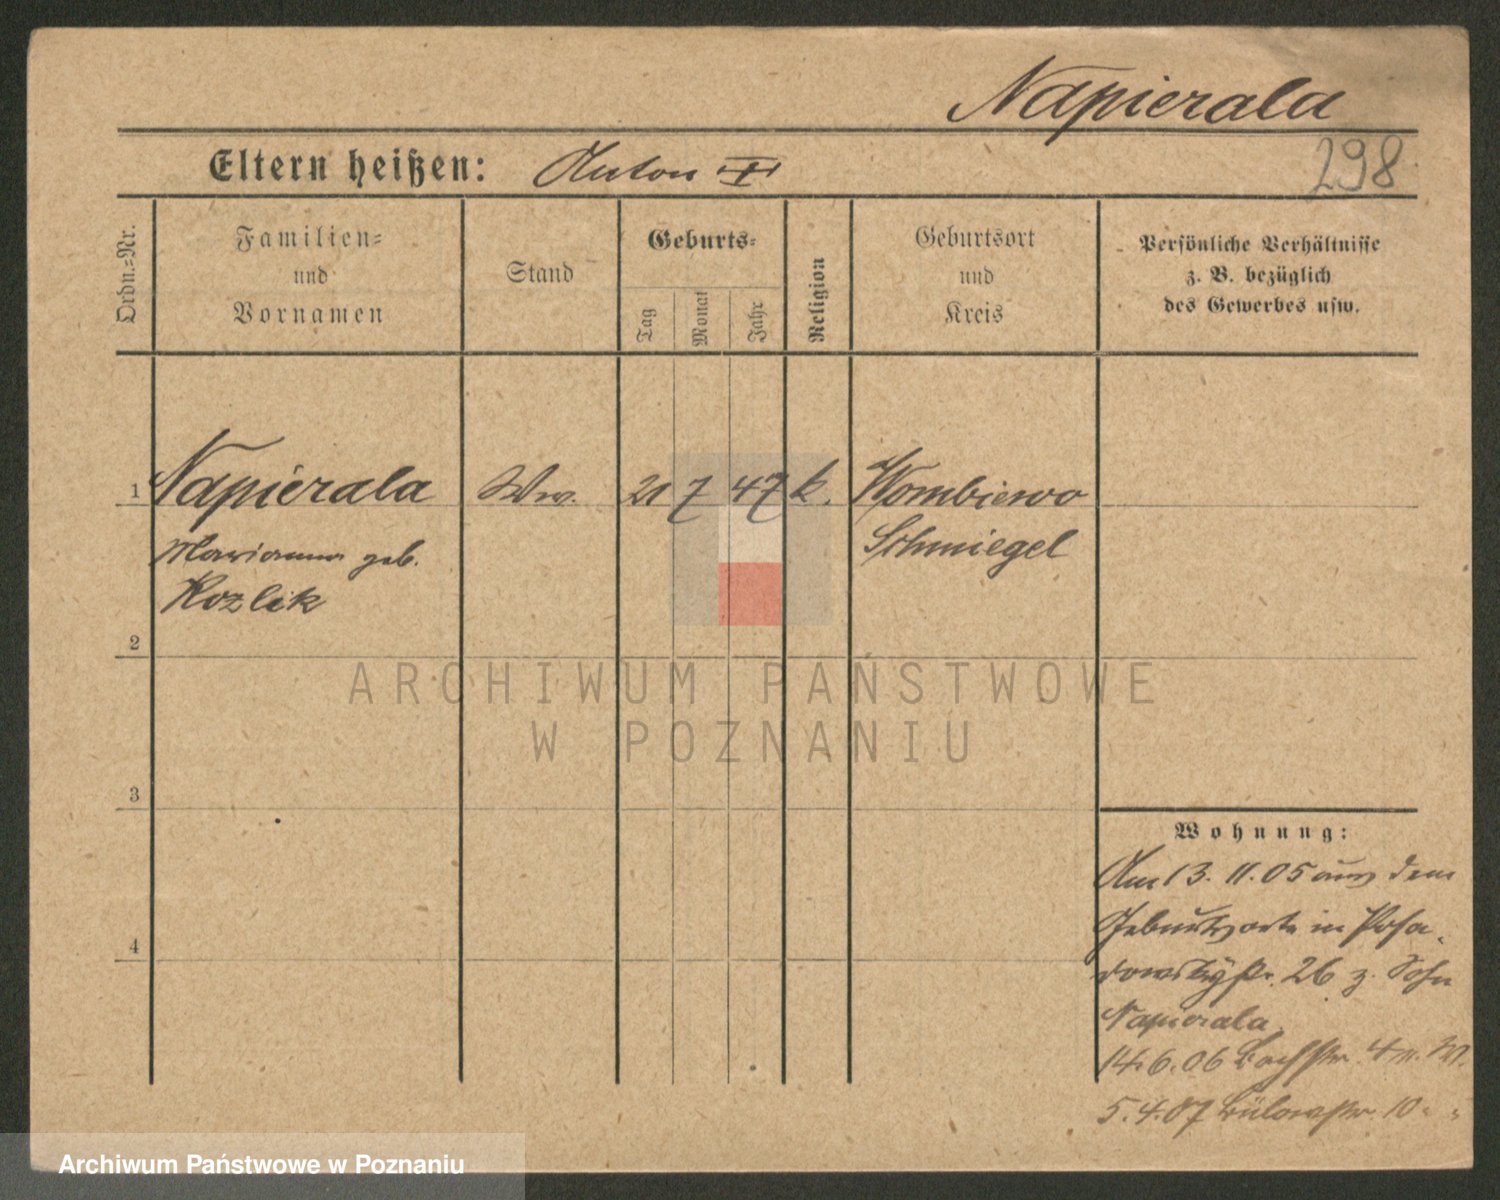 Napierala
Eltern heißen: Anton
298
Ordn.=Nr.
Familien=
und
Vornamen
Stand
Geburts=
Tag
Monat
Jahr
Religion
Geburtsort
und
Kreis
Persönliche Verhältnisse
z. B. bezüglich
des Gewerbes usw.
1 Napierala Ww. 21 7 47 k. Wombiewo
Marianna geb. Schmiegel
Kozlik
2
ARCHIWUM PAŃSTWOWE
W POZNANIU
3
Wohnung:
Am 13. 11. 05 aus dem
Geburtsorte in Posa-
dowskystr. 26 z. Sohn
Napierala
14.6.06 Bachstr. 4 m. W.
5.4.07 Bülowstr. 10 " "
4
Archiwum Państwowe w Poznaniu